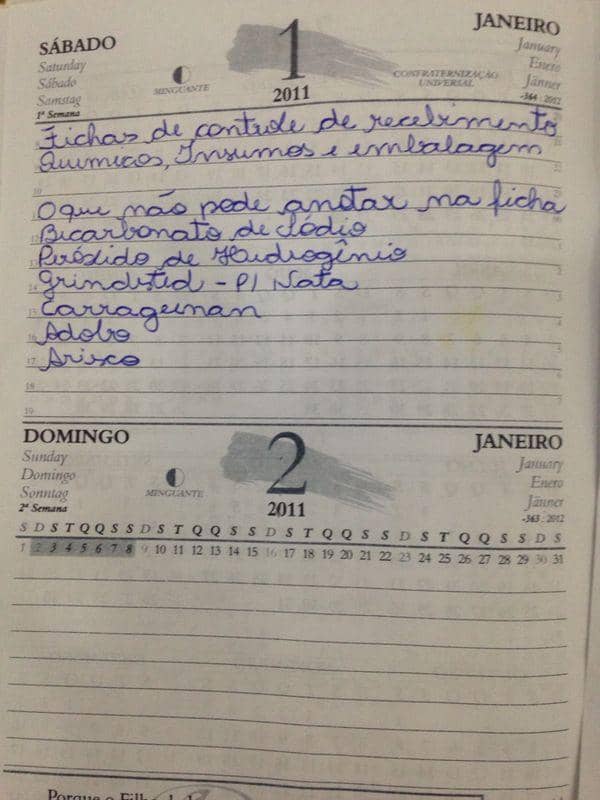 SÁBADO
Saturday
Sábado
Samstag
1ª Semana
MINGUANTE
1
2011
CONFRATERNIZAÇÃO
UNIVERSAL
JANEIRO
January
Enero
Jänner
-364 : 2012
Fichas de controle de recebimento
Quimicos, Insumos e embalagem
O que não pode anotar na ficha
Bicarbonato de Sódio
Peróxido de Hidrogênio
Grindsted - P/ Nata
Carrageenan
Adobo
Arisco
10
12
13
14
15
16
17
18
19
DOMINGO
Sunday
Domingo
Sonntag
2ª Semana
MINGUANTE
2
2011
JANEIRO
January
Enero
Jänner
-363 : 2012
S D S T Q Q S S D S T Q Q S S D S T Q Q S S D S T Q Q S S D S
1 2 3 4 5 6 7 8 9 10 11 12 13 14 15 16 17 18 19 20 21 22 23 24 25 26 27 28 29 30 31
Porque o